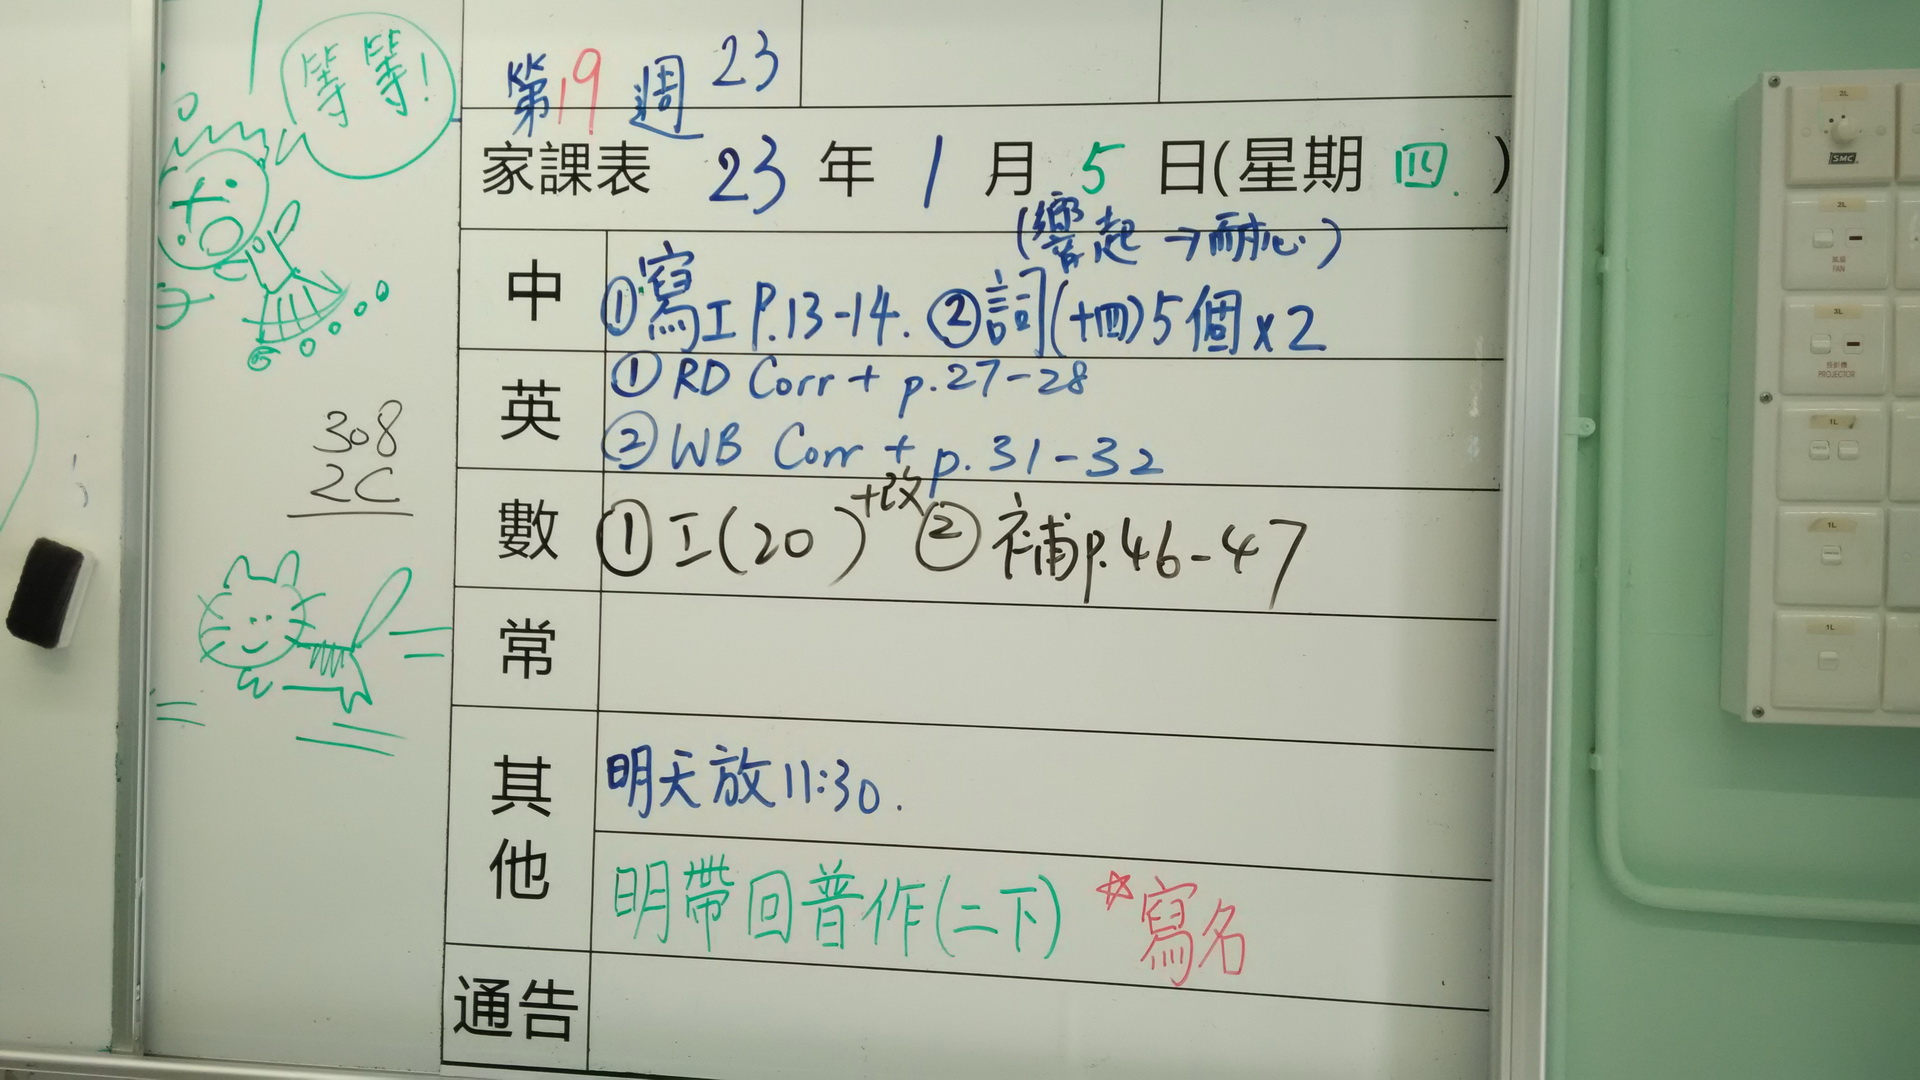 等等!
第19週 23
家課表 23 年 1 月 5 日(星期 四 )
(響起→耐心)
中 ①寫工P.13-14. ②詞(十四)5個x2
英 ① RD Corr + p.27-28
② WB Corr + p.31-32
308
2C
數 ①工(20)+改 ②補p.46-47
常
其他 明天放11:30.
明帶回普作(二下) ☆寫名
通告
2L
SMC
2L
風扇
FAN
3L
投影機
PROJECTOR
1L
1L
1L